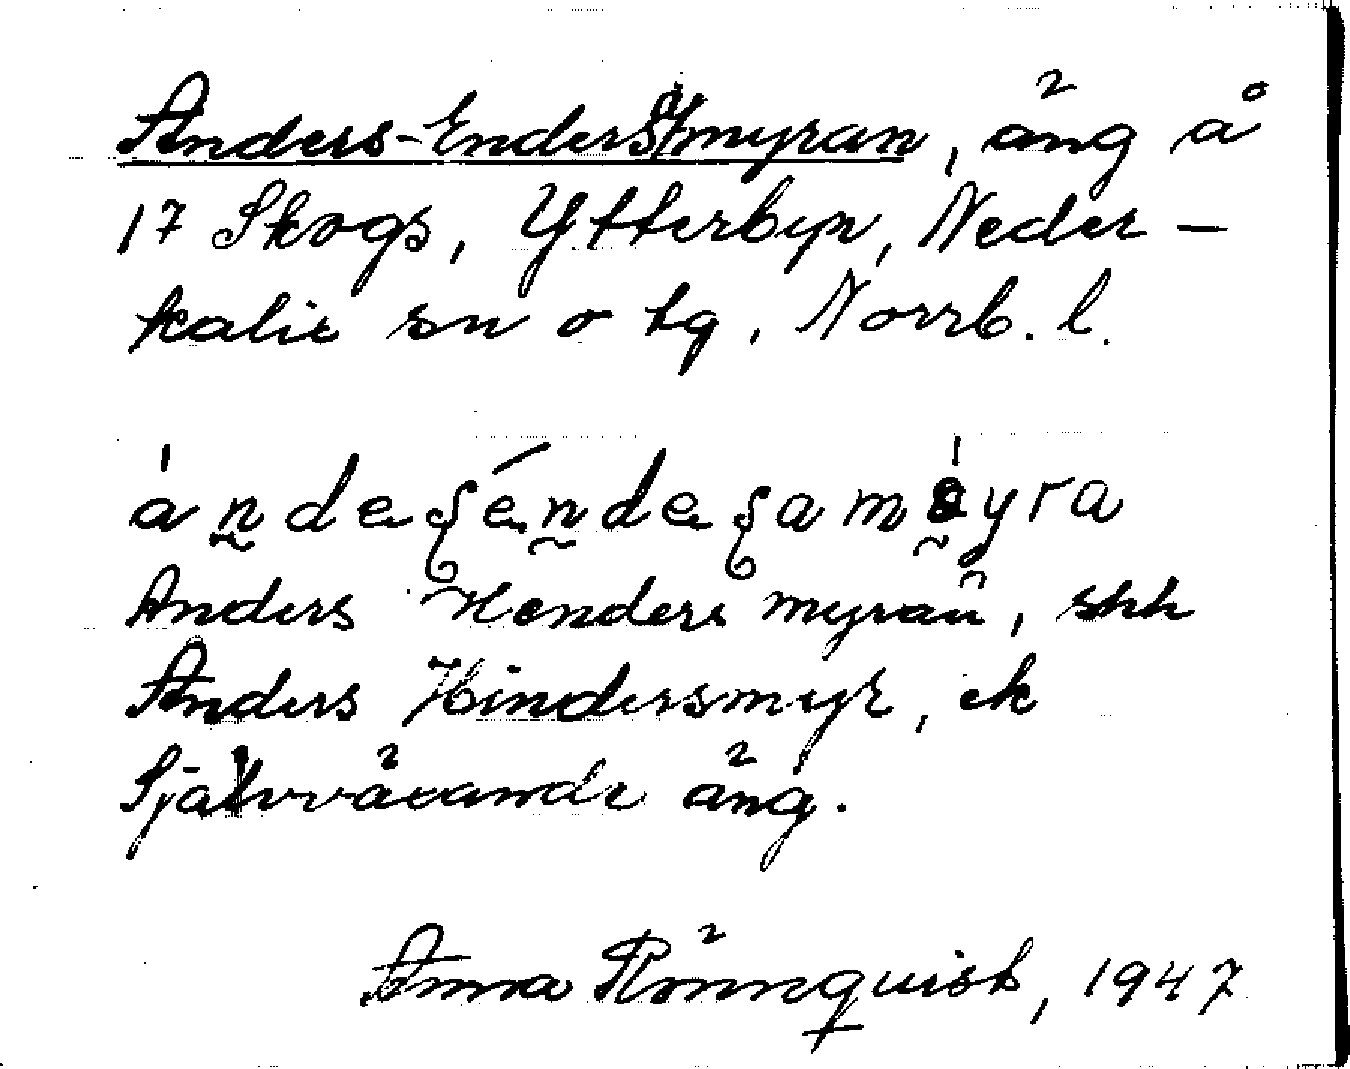 Anders-Endersmyran, äng å
17 Skogs, Ytterbyn, Neder-
kalix sn o tg, Norrb. l.
Anders Henders myran, skh
Anders Hindersmyr, ek
Självväxande äng.
Anna Rönnquist, 1947